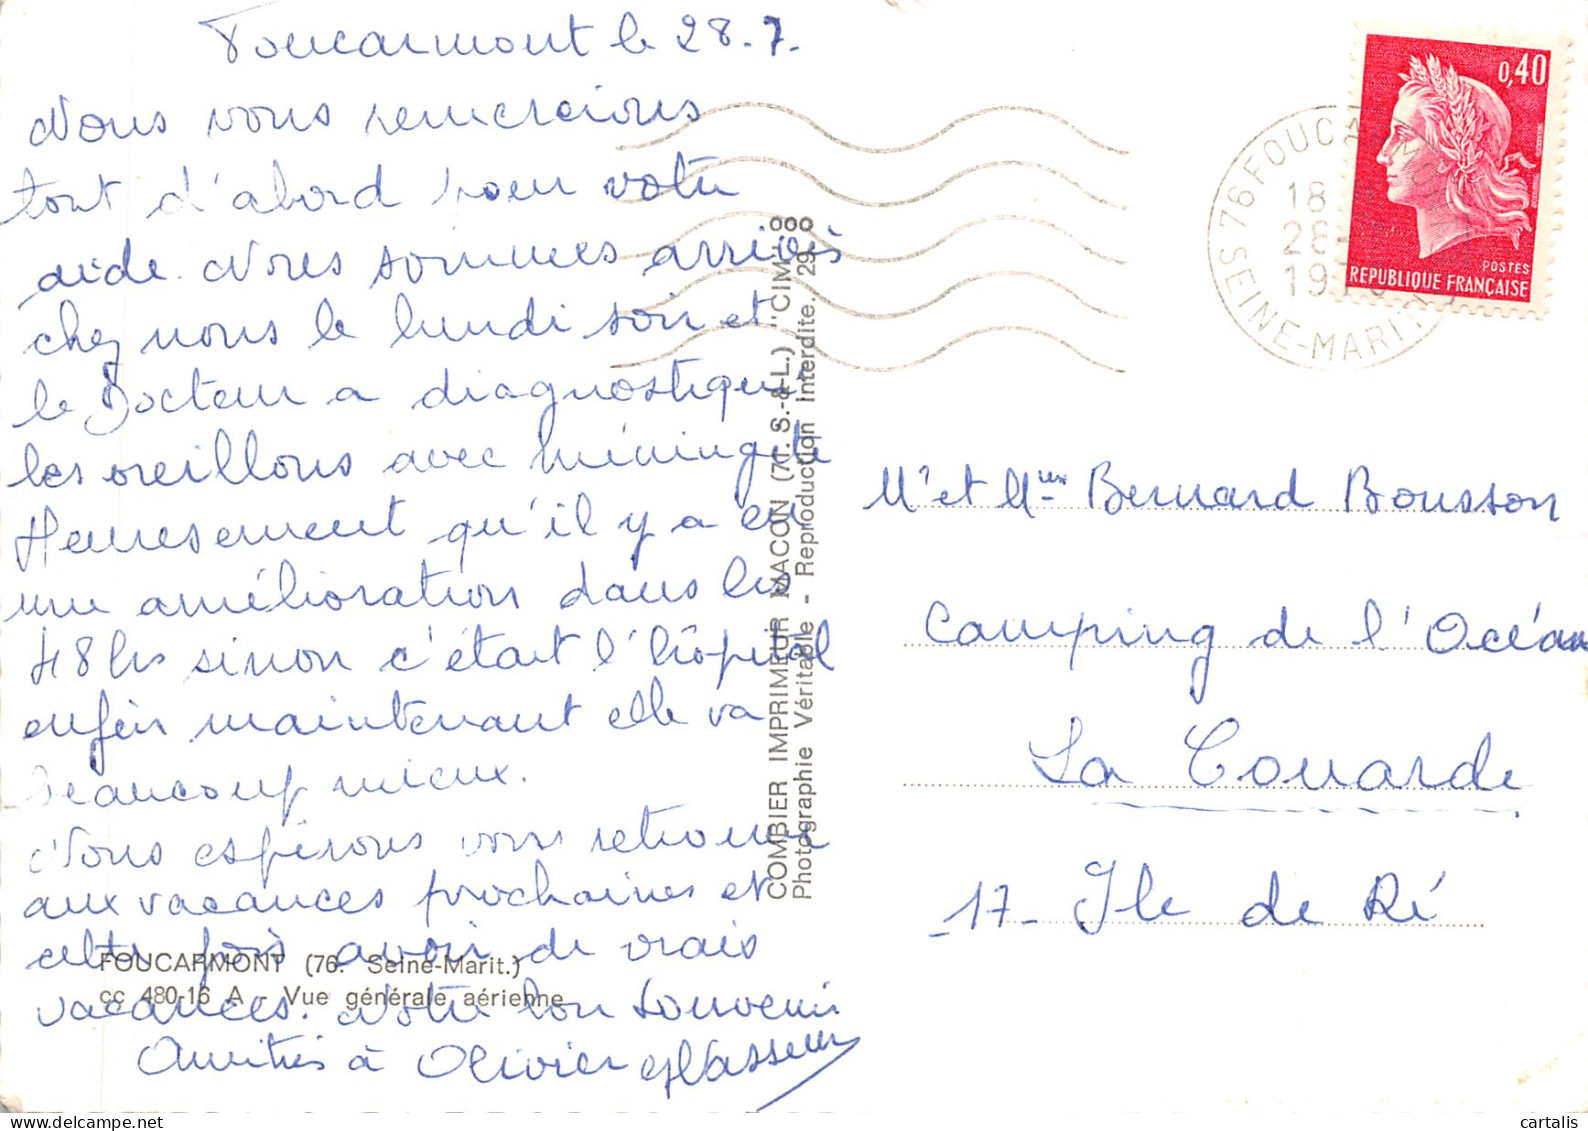 Foucarmont le 28.7.
Nous vous remercions
tout d'abord pour votre
aide. Nous sommes arrivés
chez nous le lundi soir et
le Docteur a diagnostiqué
les oreillons avec méningite
Heureusement qu'il y a eu
une amélioration dans les
48 hrs sinon c'était l'hôpital
enfin maintenant elle va
beaucoup mieux.
Nous espérons vous retrouver
aux vacances prochaines et
cette fois avoir de vrais
vacances. Notre bon souvenir
Amitiés à Olivier
FOUCARMONT (76. Seine-Marit.)
cc 480-16 A - Vue générale aérienne
COMBIER IMPRIMEUR MACON (71. S.-&-L.) "CIM"
Photographie Véritable - Reproduction Interdite.
0,40
POSTES
REPUBLIQUE FRANÇAISE
76 FOUCARM
18
28
19
SEINE-MARIT
Mr et Mme Bernard Bousson
Camping de l'Océan
La Couarde
17 - Ile de Ré
cartalis